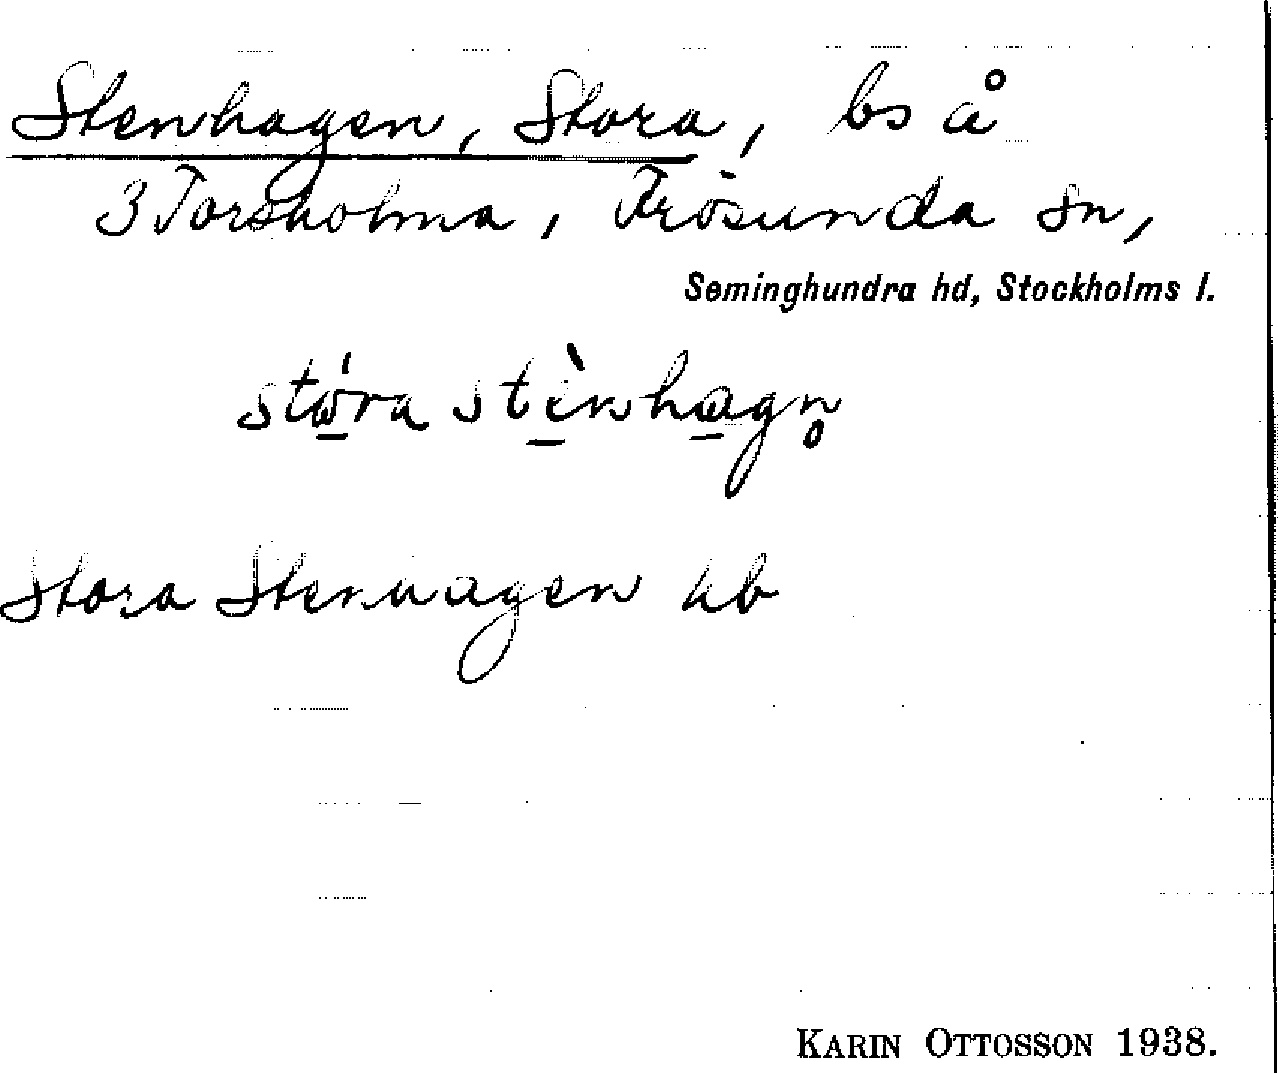 Stenhagen, Stora, bs å
3 Torsholma, Frösunda sn,
Seminghundra hd, Stockholms l.
stώ̲ra stì̲nha̲gn̥
Stora Stenhagen hb
KARIN OTTOSSON 1938.